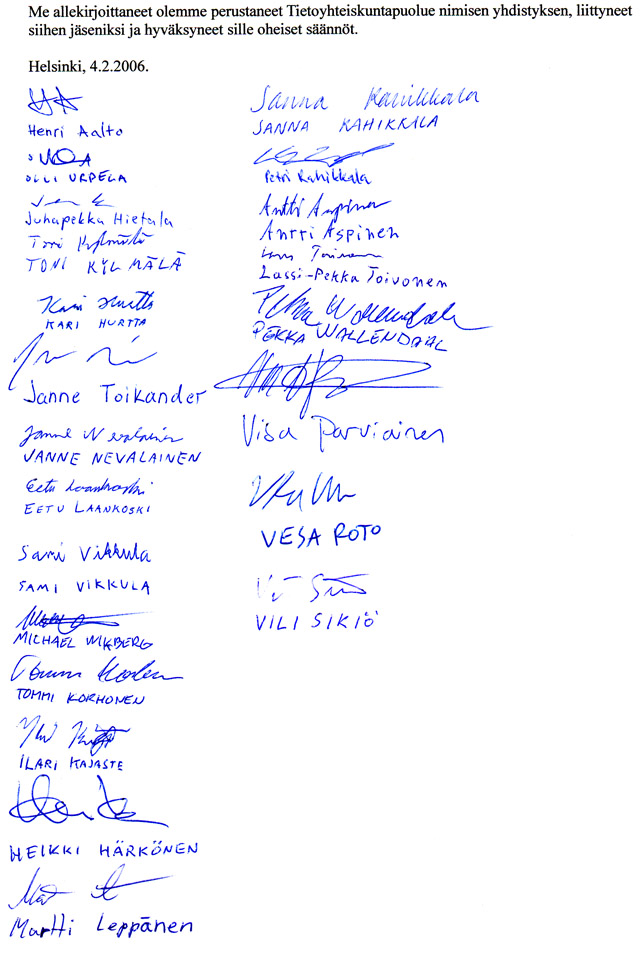 Me allekirjoittaneet olemme perustaneet Tietoyhteiskuntapuolue nimisen yhdistyksen, liittyneet
siihen jäseniksi ja hyväksyneet sille oheiset säännöt.
Helsinki, 4.2.2006.
Henri Aalto
OLLI URPELA
Juhapekka Hietala
Toni Kylmälä
TONI KYLMÄLÄ
Kari Hurtta
KARI HURTTA
Janne Toikander
Janne Nevalainen
JANNE NEVALAINEN
Eetu Laankoski
EETU LAANKOSKI
Sami Vikkula
SAMI VIKKULA
MICHAEL WIKBERG
Tommi Korhonen
TOMMI KORHONEN
ILARI KAJASTE
HEIKKI HÄRKÖNEN
Martti Leppänen
Sanna Kahikkala
SANNA KAHIKKALA
Petri Kahikkala
Antti Aspinen
ANTTI ASPINEN
Lassi-Pekka Toivonen
Pekka Wallendahl
PEKKA WALLENDAHL
Visa Parviainen
VESA ROTO
VILI SIKIÖ